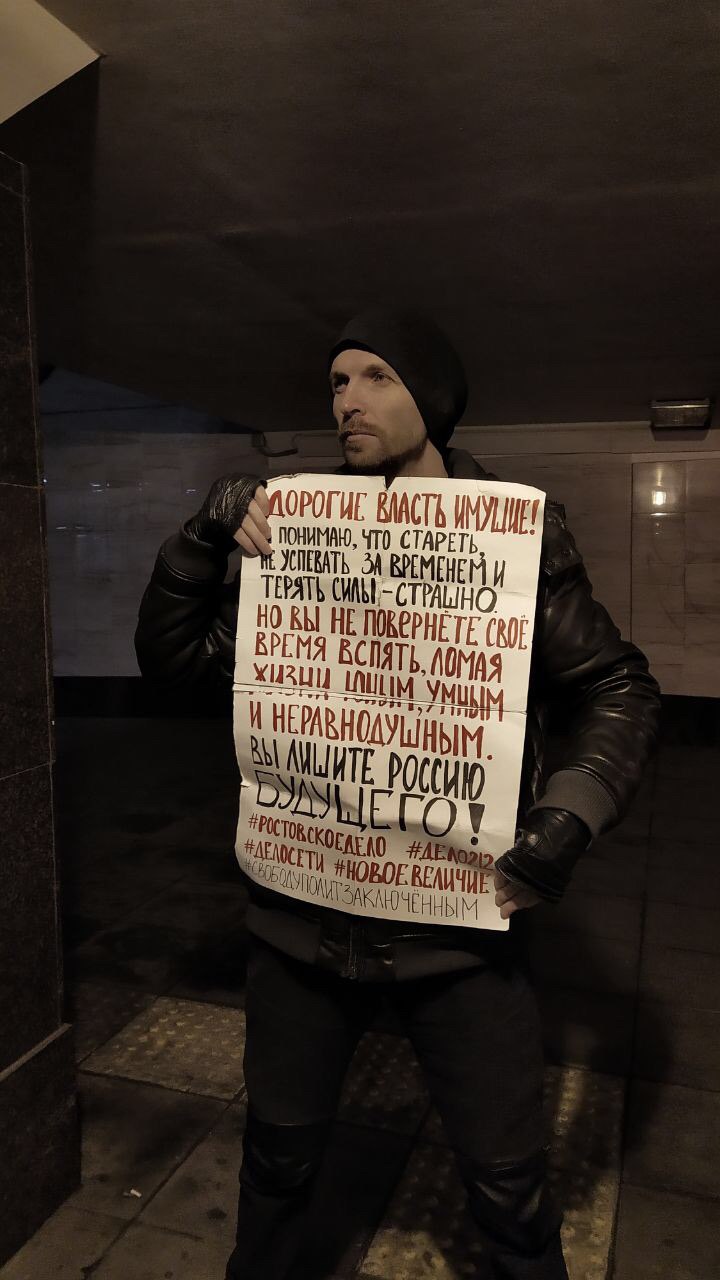 ДОРОГИЕ ВЛАСТЬ ИМУЩИЕ!
ПОНИМАЮ, ЧТО СТАРЕТЬ,
НЕ УСПЕВАТЬ ЗА ВРЕМЕНЕМ И
ТЕРЯТЬ СИЛЫ – СТРАШНО.
НО ВЫ НЕ ПОВЕРНЁТЕ СВОЁ
ВРЕМЯ ВСПЯТЬ, ЛОМАЯ
ЖИЗНИ ЮНЫМ, УМНЫМ
И НЕРАВНОДУШНЫМ.
ВЫ ЛИШИТЕ РОССИЮ
БУДУЩЕГО!
#РОСТОВСКОЕДЕЛО #ДЕЛО212
#ДЕЛОСЕТИ #НОВОЕВЕЛИЧИЕ
#СВОБОДУПОЛИТЗАКЛЮЧЁННЫМ